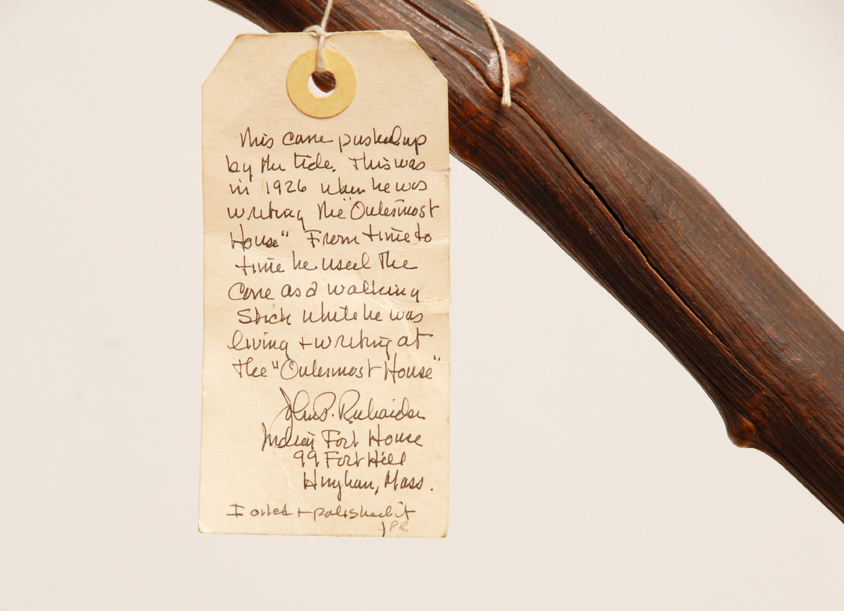 This cane pushed up
by the tide. This was
in 1926 when he was
writing the "Outermost
House" From time to
time he used the
Cane as a walking
Stick while he was
living + writing at
the "Outermost House"
John P. Richardson
Indian Fort House
99 Fort Hill
Hingham, Mass.
I oiled + polished it
JPR